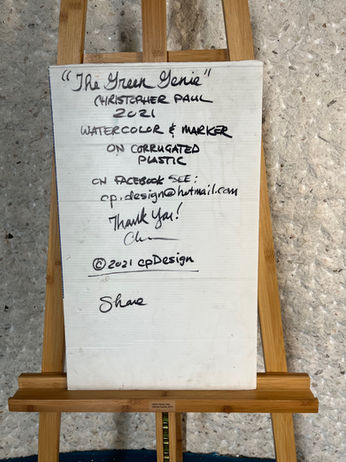 "The Green Genie"
CHRISTOPHER PAUL
2021
WATERCOLOR & MARKER
ON CORRUGATED
PLASTIC
ON FACEBOOK SEE:
cp.design@hotmail.com
Thank You!
© 2021 cpDesign
Share